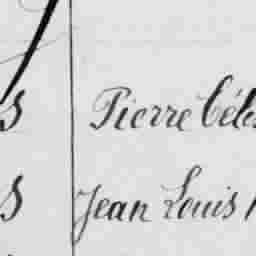 s Pierre Céles
s Jean Louis